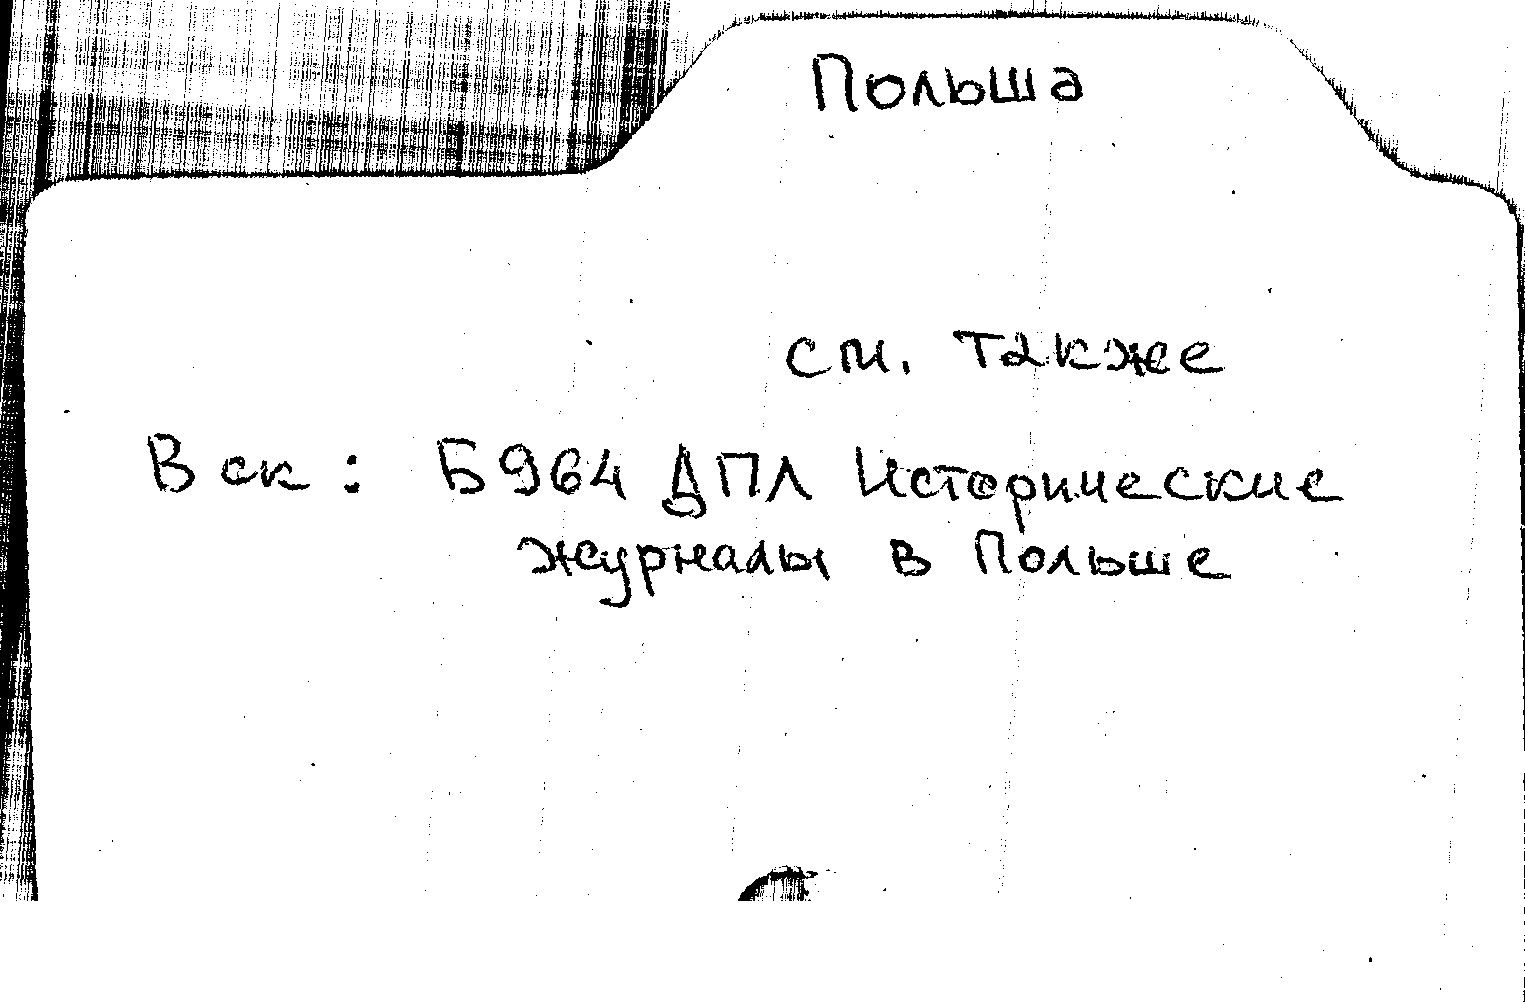 Польша
см. также
В ск: Б964 ДПЛ Исторические
журналы в Польше